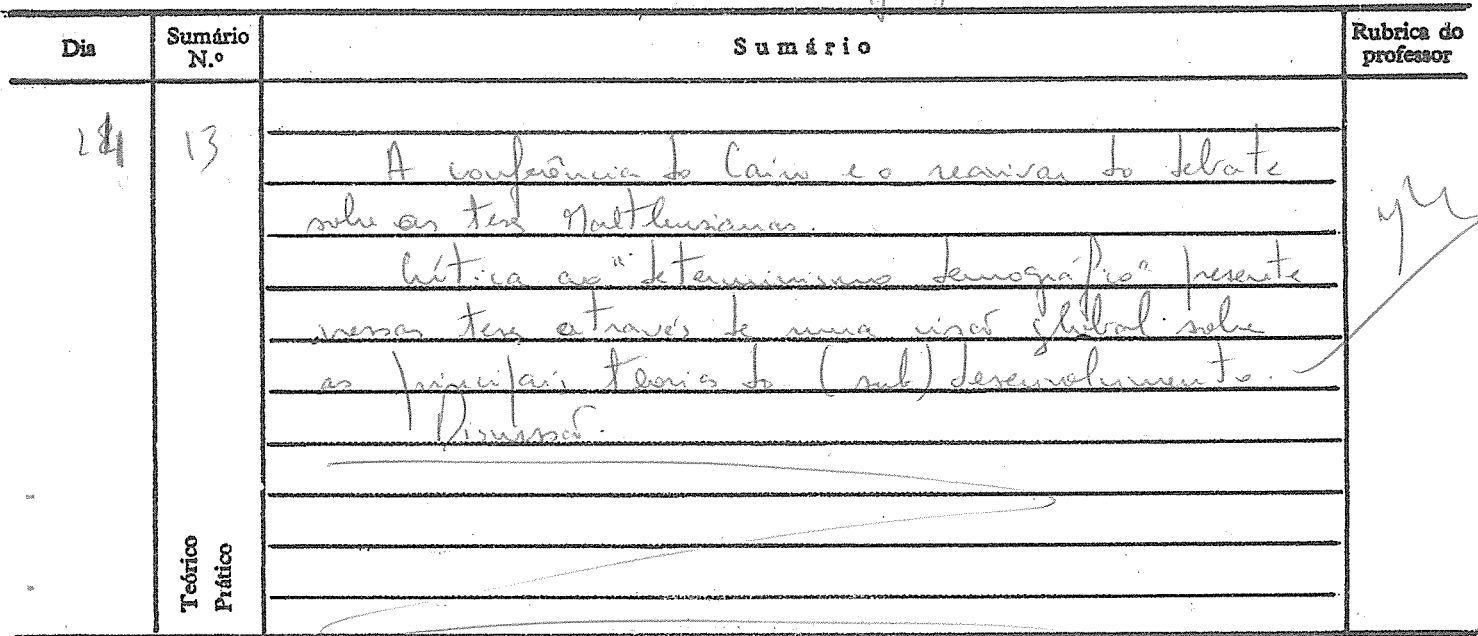 Dia
Sumário N.º
Sumário
Rubrica do professor
13
A conferência do Cairo e o reavivar do debate
sobre as teses Malthusianas.
Crítica ao "determinismo demográfico" presente
nessas teses através de uma visão global sobre
as principais teorias do (sub) desenvolvimento.
Discussão.
Teórico
Prático